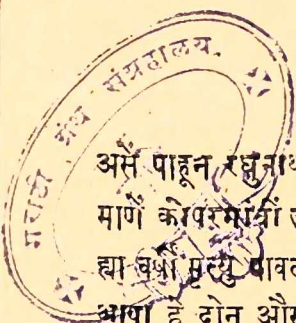 मराठी ग्रंथ संग्रहालय.
असें पाहून रघुनाथ
माणें कोपरगांवीं
ह्या वर्षी मृत्यु पावल
आपा हे दोन औरस